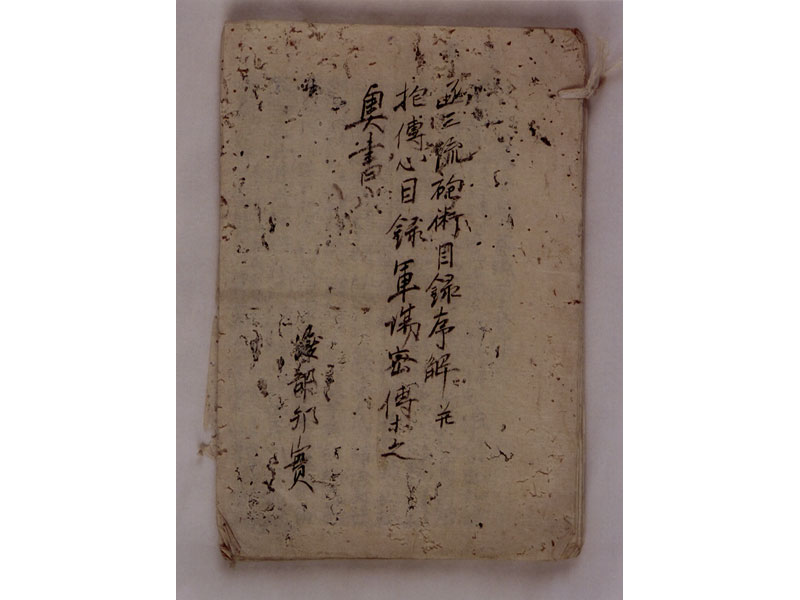 函三流砲術目録序解并
抱傳心目録軍場密傳木之
奥書
渡部 實